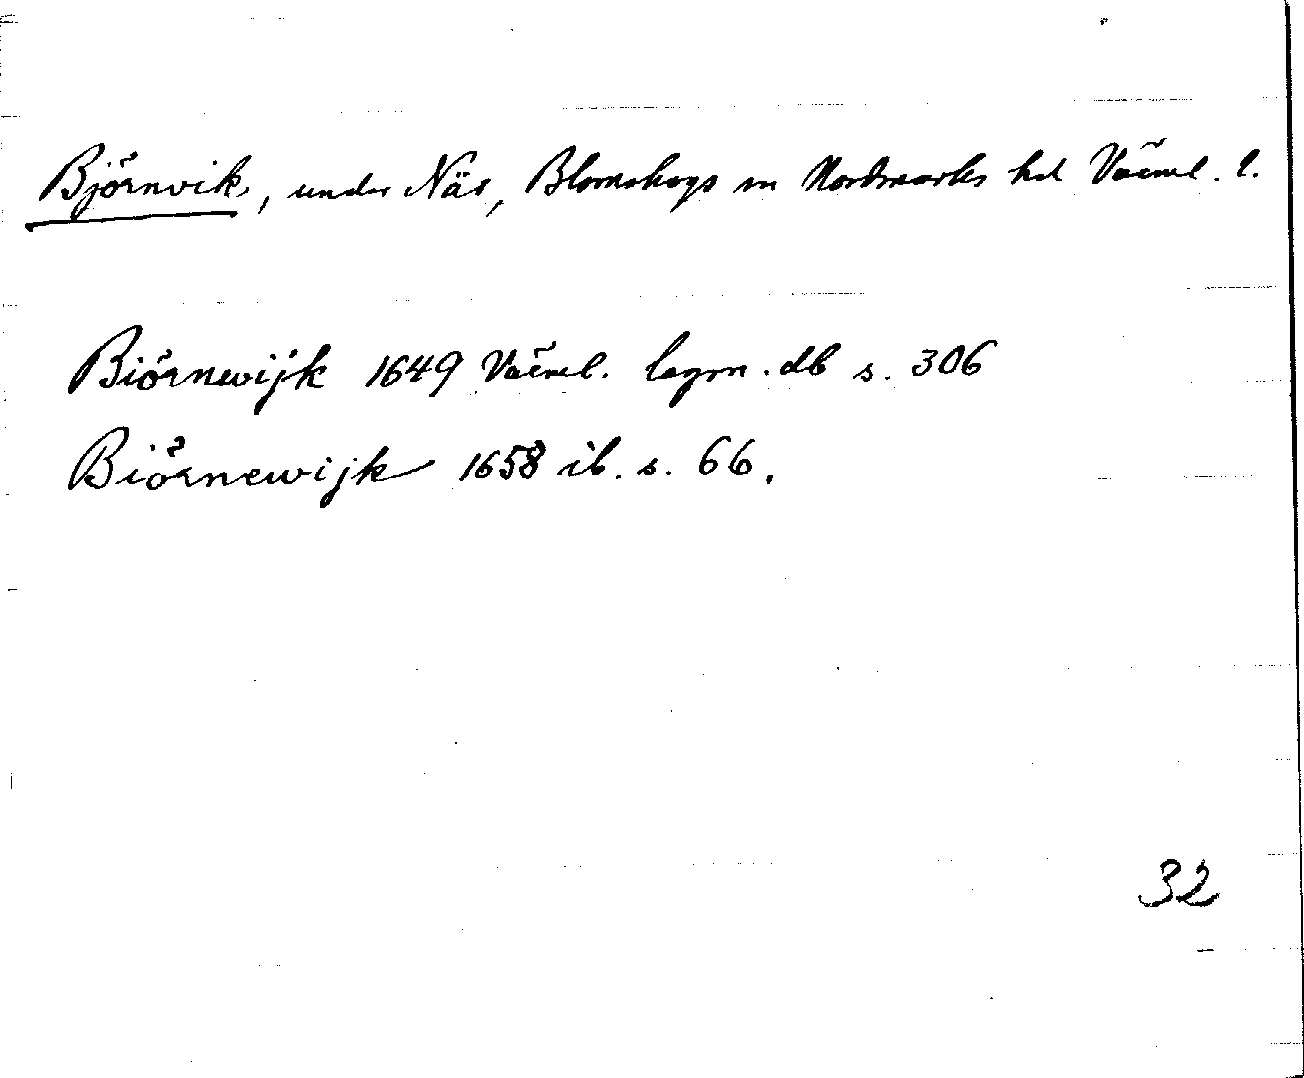 Björnvik, under När, Blomskogs sn Nordmarks hd Värml. l.
Biörnewijk 1649 Värml. lagm. db s. 306
Biörnewijk 1658 ib. s. 66.
32